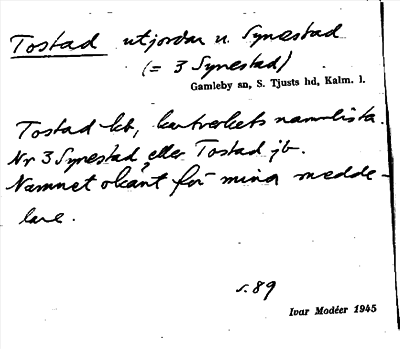 Tostad utjordar u. Synestad
(= 3 Synestad)
Gamleby sn, S. Tjusts hd, Kalm. l.
Tostad kb, kartverkets namnlista.
Nr 3 Synestad eller Tostad jb.
Namnet okänt för mina medde-
lare.
s. 89
Ivar Modéer 1945